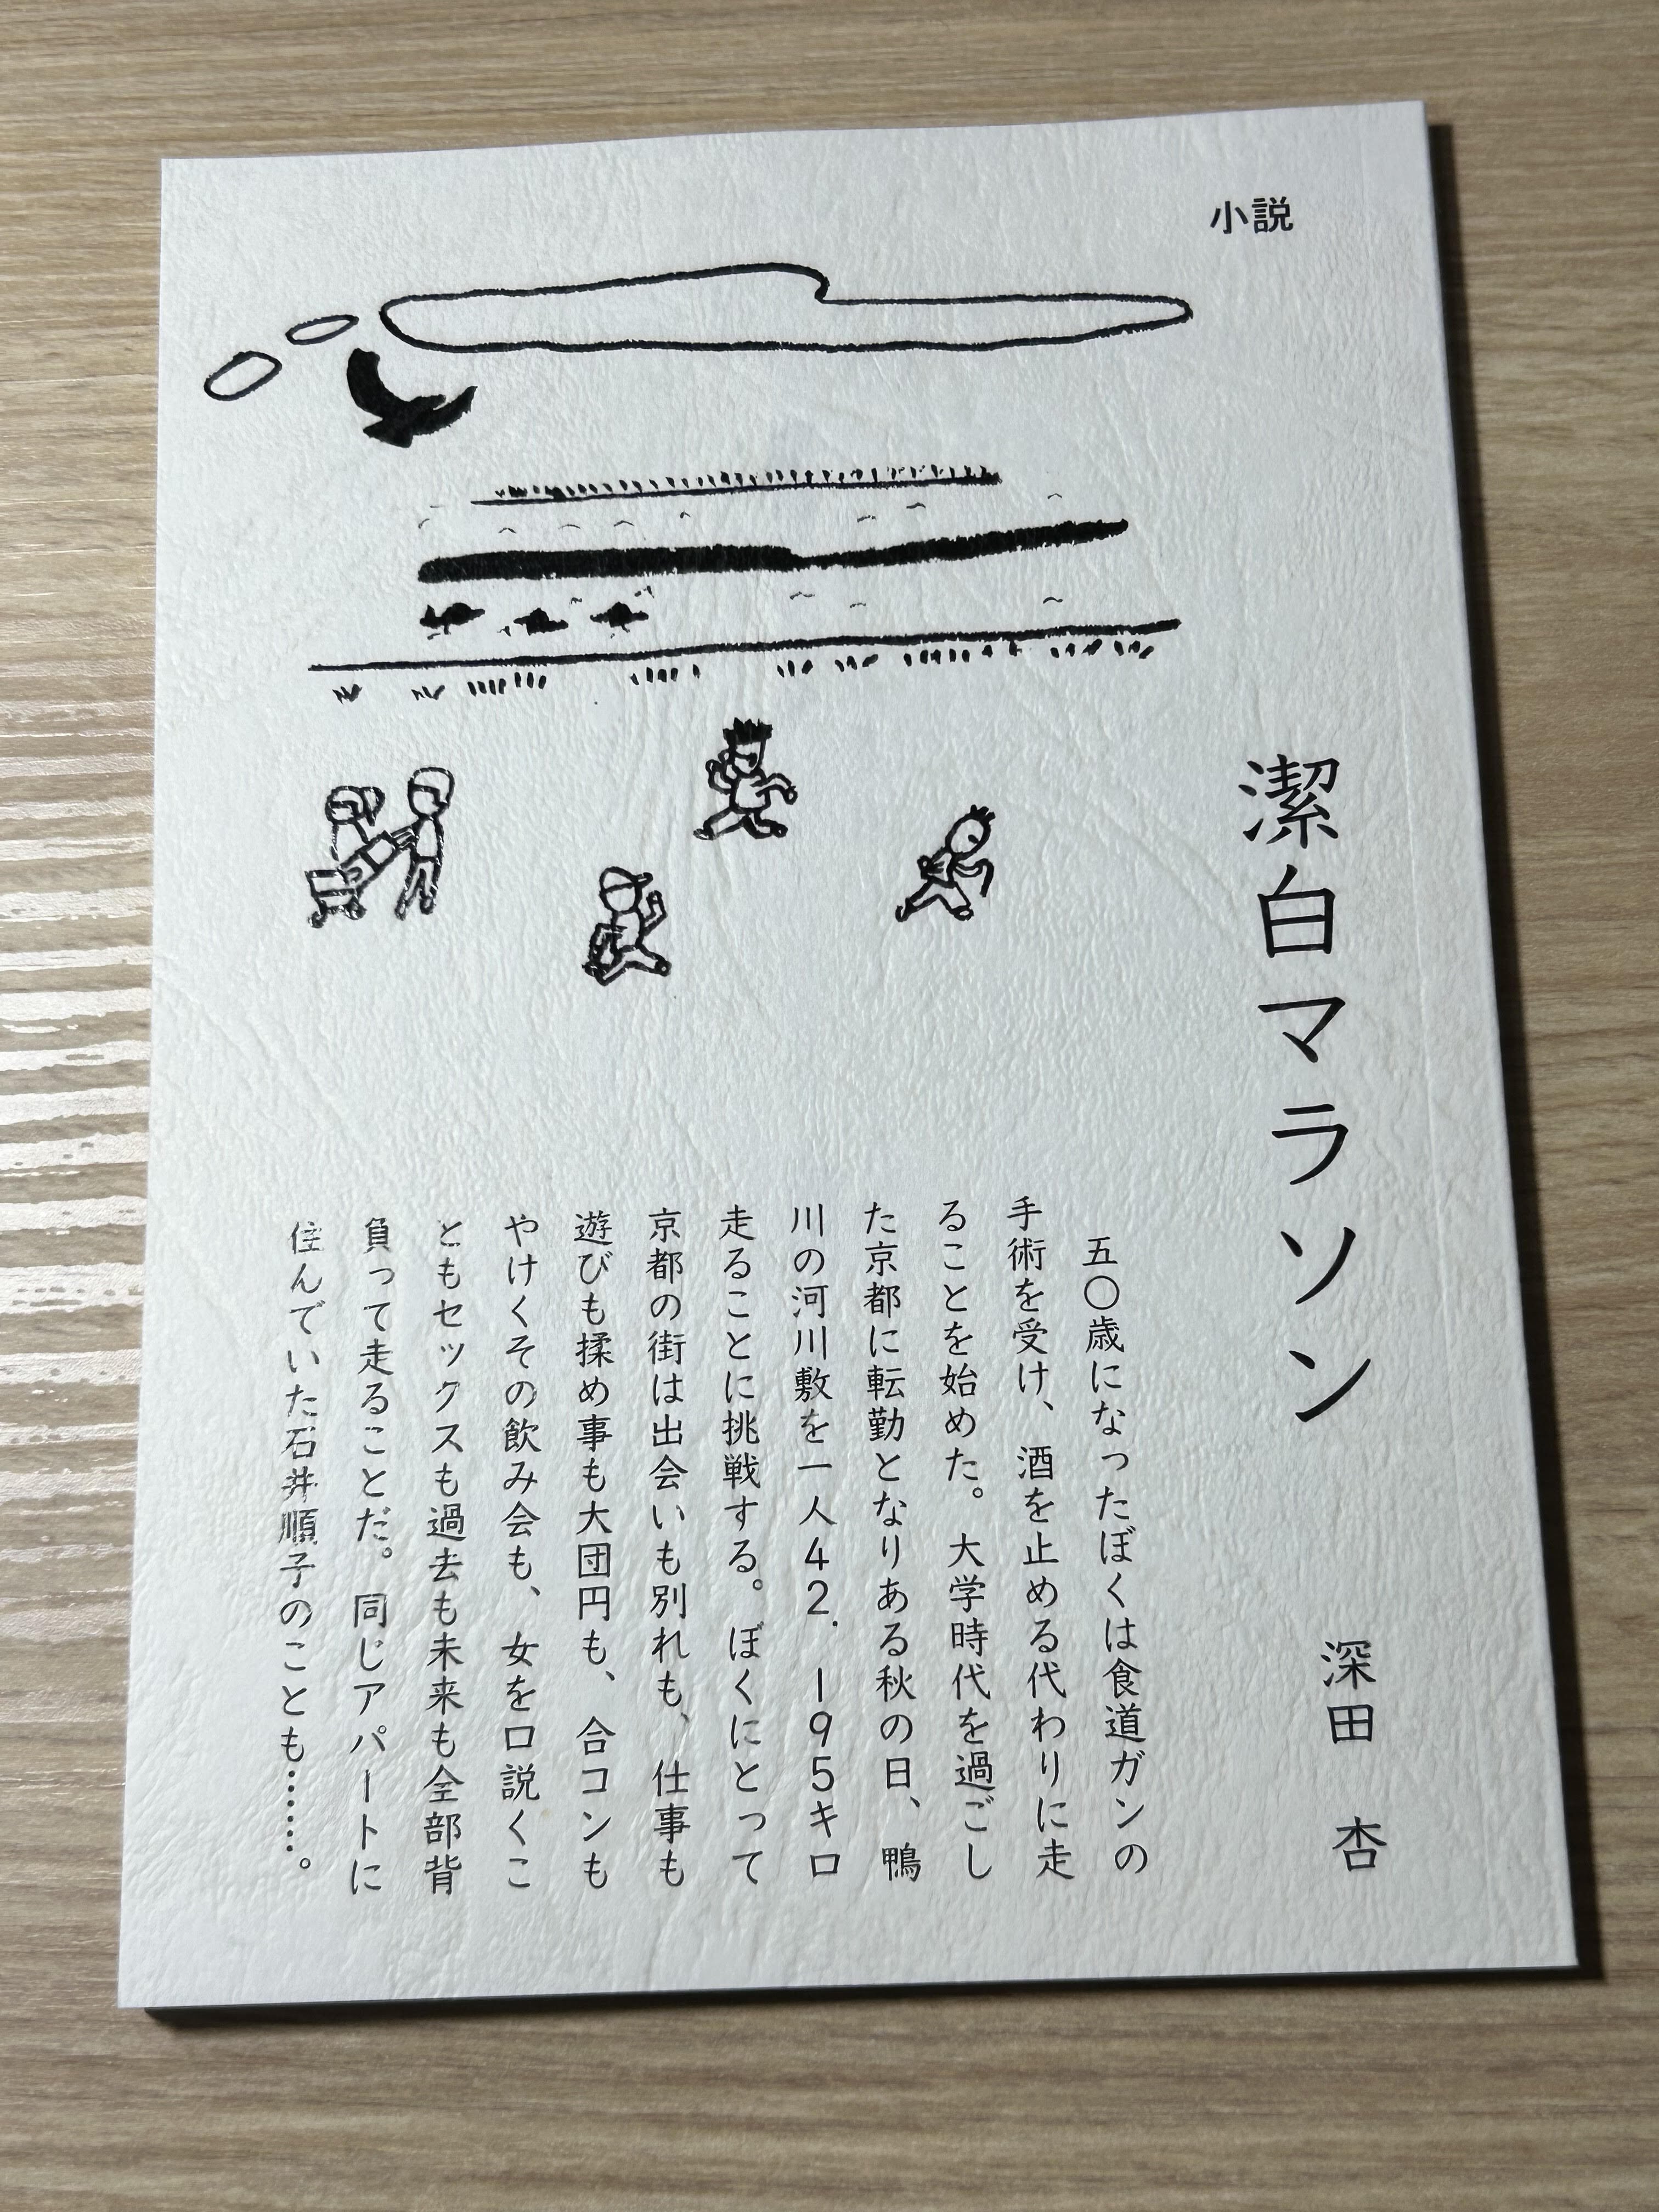 小説
潔白マラソン
深田 杏
五〇歳になったぼくは食道ガンの
手術を受け、酒を止める代わりに走
ることを始めた。大学時代を過ごし
た京都に転勤となりある秋の日、鴨
川の河川敷を一人42.195キロ
走ることに挑戦する。ぼくにとって
京都の街は出会いも別れも、仕事も
遊びも揉め事も大団円も、合コンも
やけくその飲み会も、女を口説くこ
ともセックスも過去も未来も全部背
負って走ることだ。同じアパートに
住んでいた石井順子のことも……。